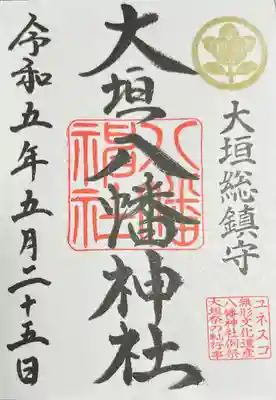 大垣総鎮守
ユネスコ
無形文化遺産
八幡神社例祭
大垣祭の軕行事
大垣八幡神社
八幡
神社
令和五年五月二十五日